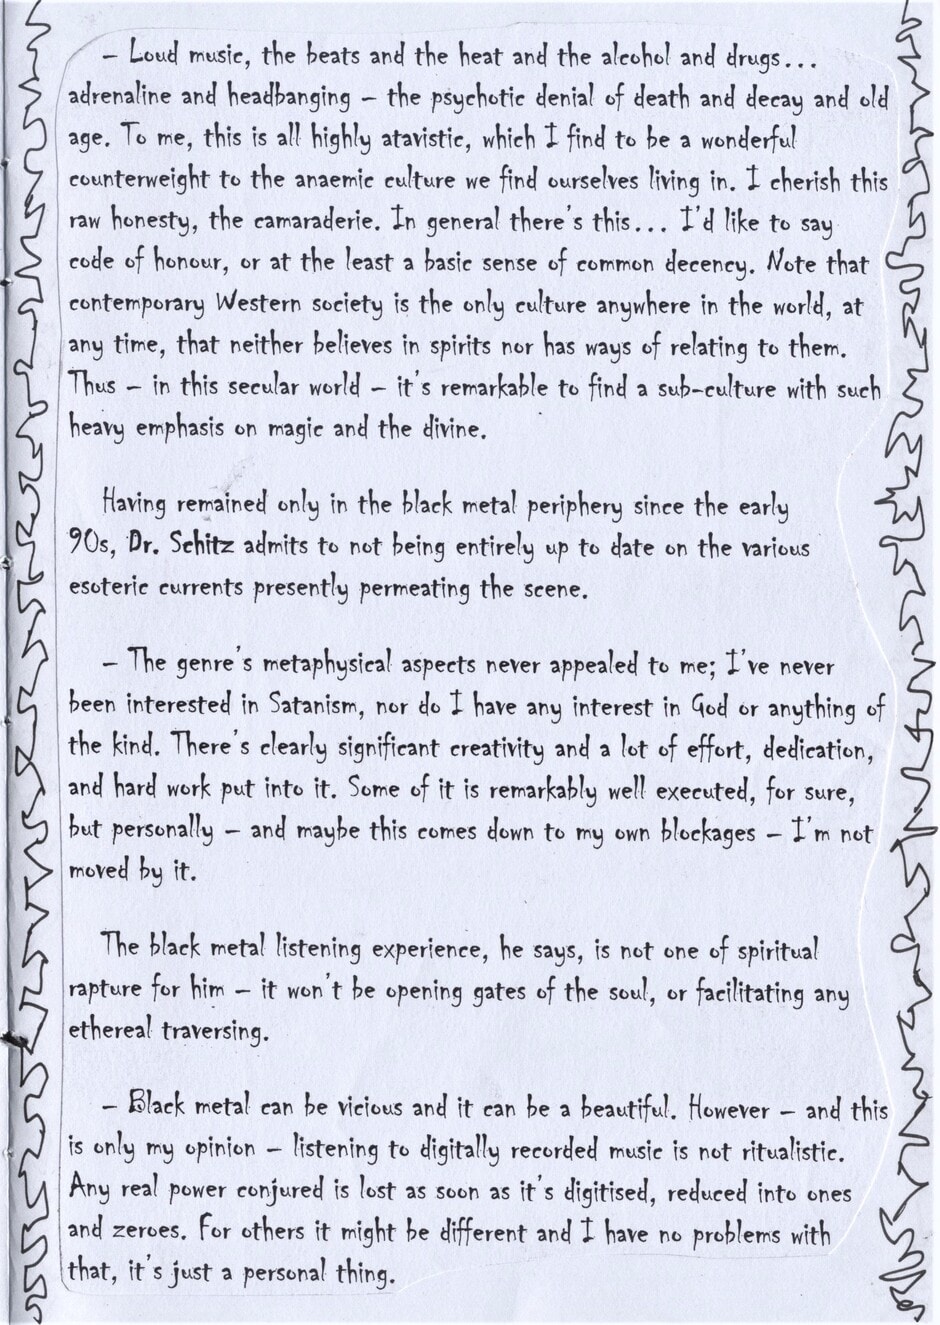 – Loud music, the beats and the heat and the alcohol and drugs...
adrenaline and headbanging – the psychotic denial of death and decay and old
age. To me, this is all highly atavistic, which I find to be a wonderful
counterweight to the anaemic culture we find ourselves living in. I cherish this
raw honesty, the camaraderie. In general there's this... I'd like to say
code of honour, or at the least a basic sense of common decency. Note that
contemporary Western society is the only culture anywhere in the world, at
any time, that neither believes in spirits nor has ways of relating to them.
Thus – in this secular world – it's remarkable to find a sub-culture with such
heavy emphasis on magic and the divine.
Having remained only in the black metal periphery since the early
90s, Dr. Schitz admits to not being entirely up to date on the various
esoteric currents presently permeating the scene.
– The genre's metaphysical aspects never appealed to me; I've never
been interested in Satanism, nor do I have any interest in God or anything of
the kind. There's clearly significant creativity and a lot of effort, dedication,
and hard work put into it. Some of it is remarkably well executed, for sure,
but personally – and maybe this comes down to my own blockages – I'm not
moved by it.
The black metal listening experience, he says, is not one of spiritual
rapture for him – it won't be opening gates of the soul, or facilitating any
ethereal traversing.
– Black metal can be vicious and it can be a beautiful. However – and this
is only my opinion – listening to digitally recorded music is not ritualistic.
Any real power conjured is lost as soon as it's digitised, reduced into ones
and zeroes. For others it might be different and I have no problems with
that, it's just a personal thing.